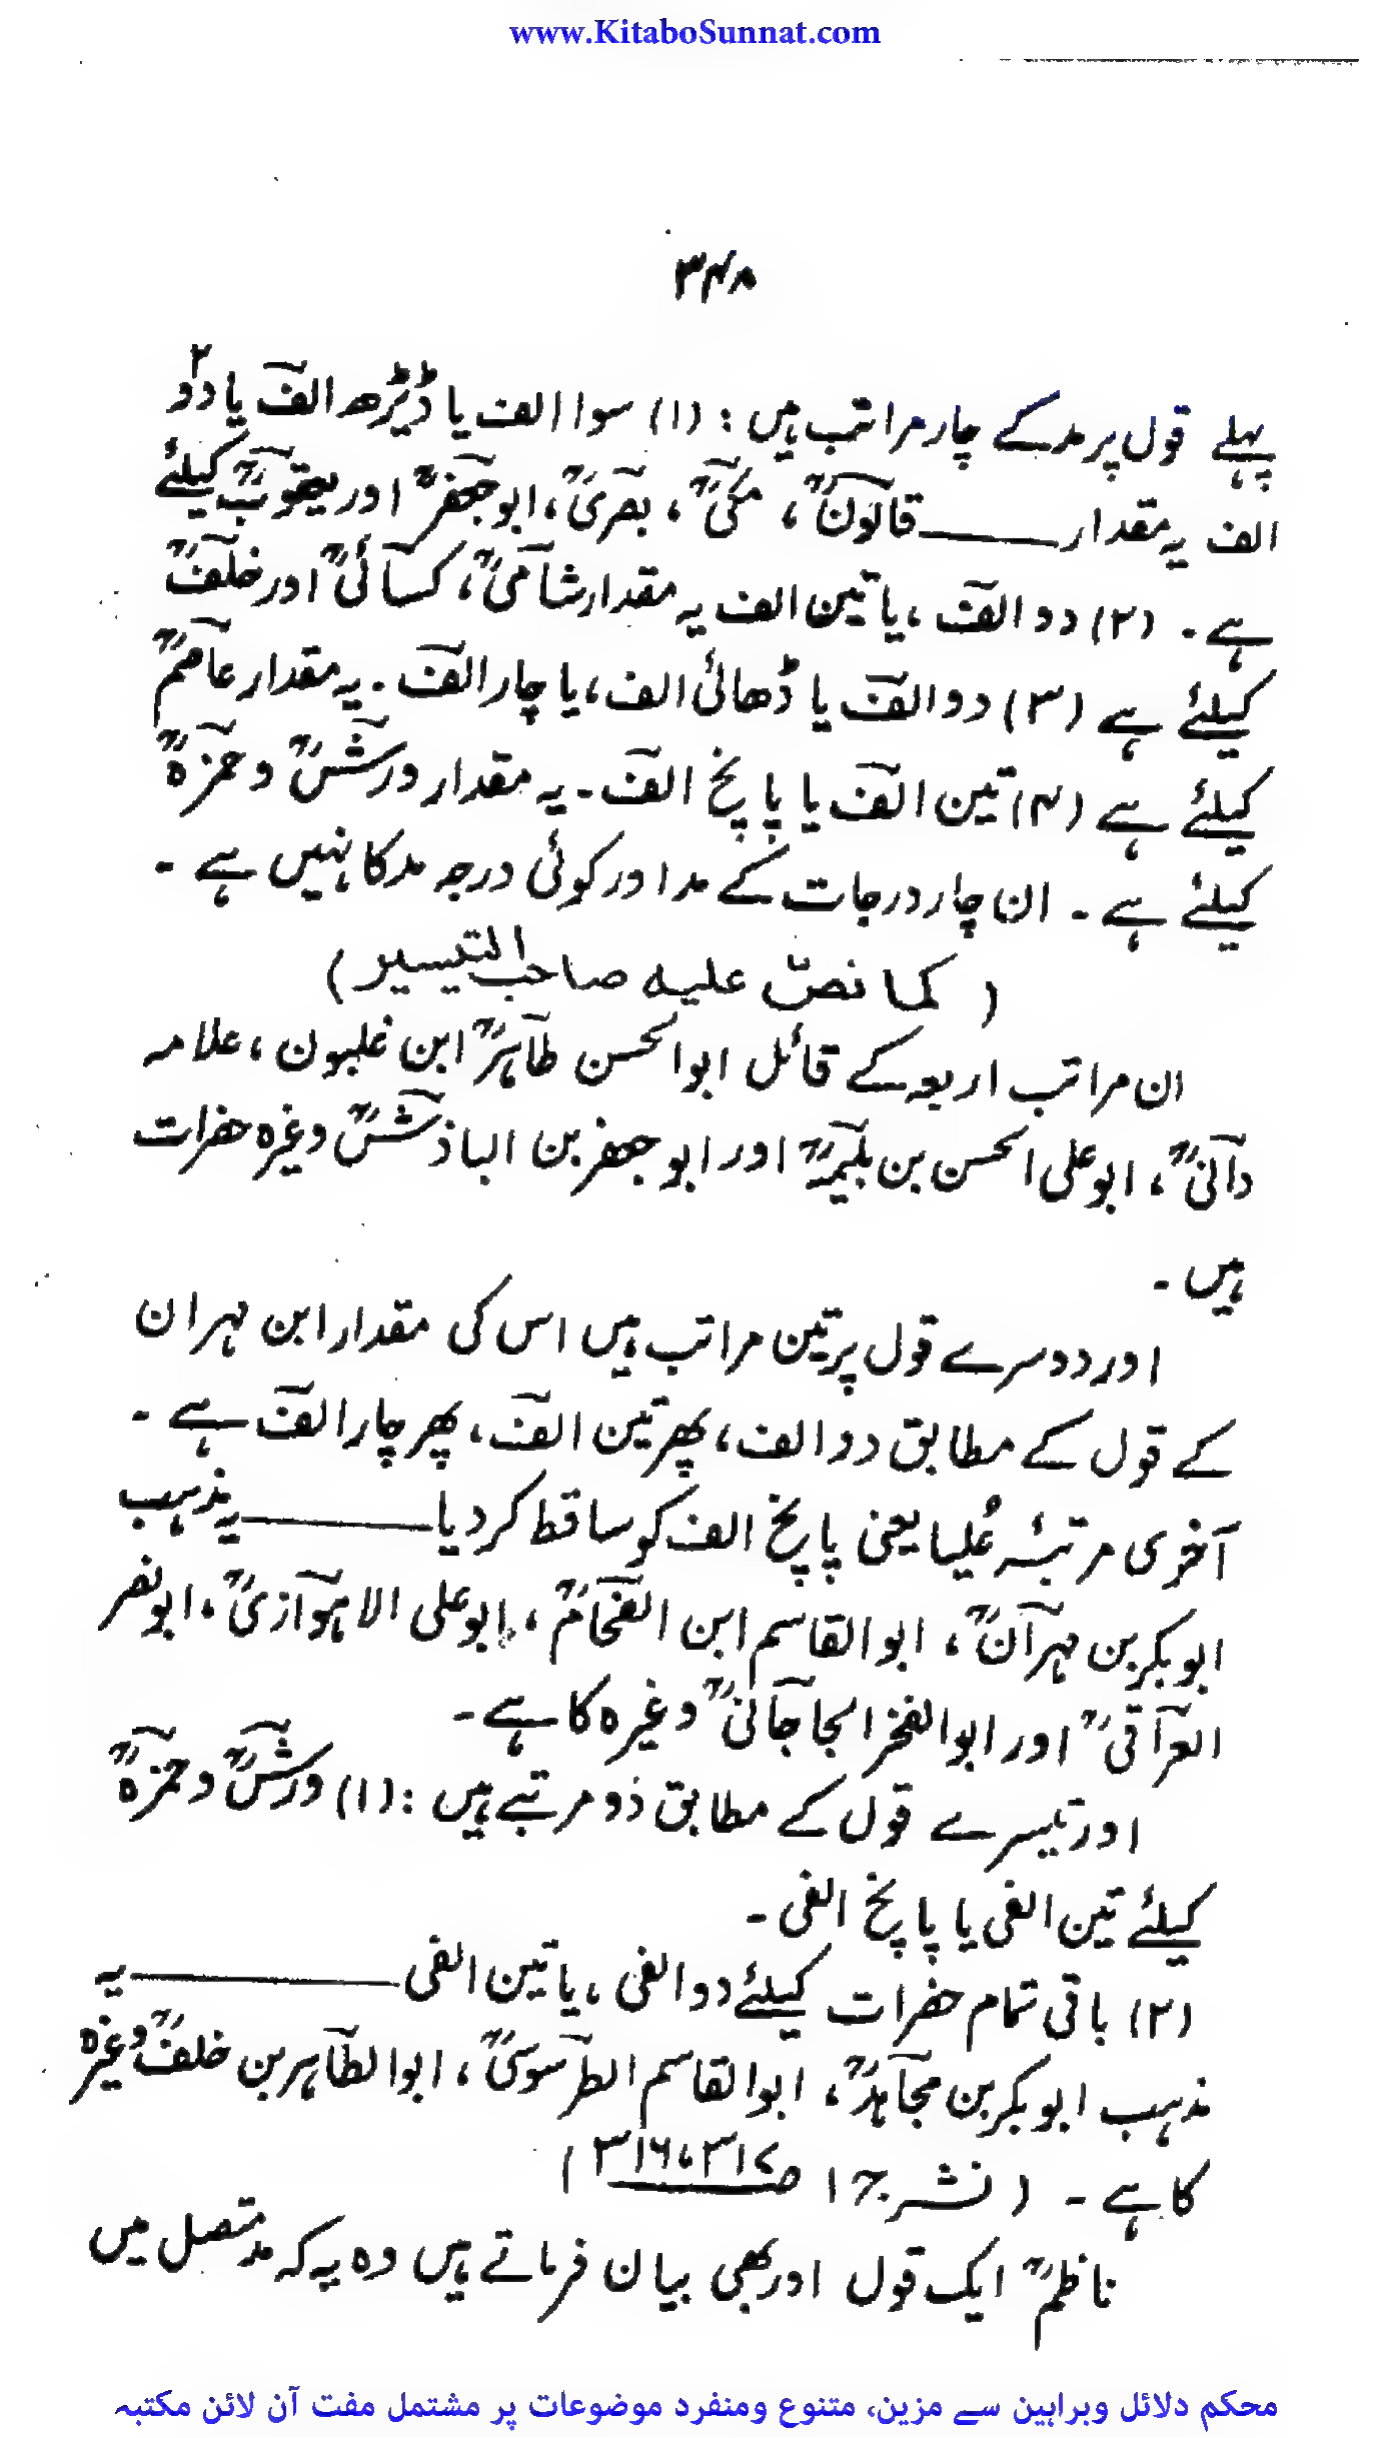 www.KitaboSunnat.com
۳۴۸
پہلے قول پر مد کے چار مراتب ہیں : (۱) سوا الف یا ڈیڑھ الف یا دو۲
الف یہ مقدار ـــــــ قالونؒ ، مکیؒ ، بصریؒ ، ابو جعفرؒ اور یعقوبؒ کیلئے
ہے ۔ (۲) دو الف ، یا تین الف یہ مقدار شامیؒ ، کسائیؒ اور خلفؒ
کیلئے ہے (۳) دو الف یا ڈھائی الف ، یا چار الف ۔ یہ مقدار عاصمؒ
کیلئے ہے (۴) تین الف یا پانچ الف ۔ یہ مقدار ورشؒ و حمزہؒ
کیلئے ہے ۔ ان چار درجات کے مد اور کوئی درجہ مد کا نہیں ہے ۔
( کما نصّ علیہ صاحب التیسیر )
ان مراتب اربعہ کے قائل ابوالحسن طاہرؒ ابن غلبون ، علامہ
دانیؒ ، ابو علی الحسن بن بلیمہؒ اور ابو جعفر بن الباذشؒ وغیرہ حضرات
ہیں ۔
اور دوسرے قول پر تین مراتب ہیں اس کی مقدار ابن مہران
کے قول کے مطابق دو الف ، پھر تین الف ، پھر چار الف ہے ۔
آخری مرتبۂ عُلیا یعنی پانچ الف کو ساقط کر دیا ـــــــ یہ مذہب
ابو بکر بن مہرانؒ ، ابوالقاسم ابن الفحامؒ ، ابو علی الاہوازیؒ ، ابو نصر
العراقیؒ اور ابوالفخر الجاجانیؒ وغیرہ کا ہے ۔
اور تیسرے قول کے مطابق دو مرتبے ہیں : (۱) ورشؒ و حمزہؒ
کیلئے تین الفی یا پانچ الفی ۔
(۲) باقی تمام حضرات کیلئے دو الفی ، یا تین الفی ـــــــ یہ
مذہب ابو بکر بن مجاہدؒ ، ابوالقاسم الطرسوسیؒ ، ابوالطاہر بن خلفؒ وغیرہ
کا ہے ۔ ( نشر ج ۱ ص ۳۱۶ ، ۳۱۷ )
ناظمؒ ایک قول اور بھی بیان فرماتے ہیں وہ یہ کہ مد متصل میں
محکم دلائل وبراہین سے مزین، متنوع ومنفرد موضوعات پر مشتمل مفت آن لائن مکتبہ